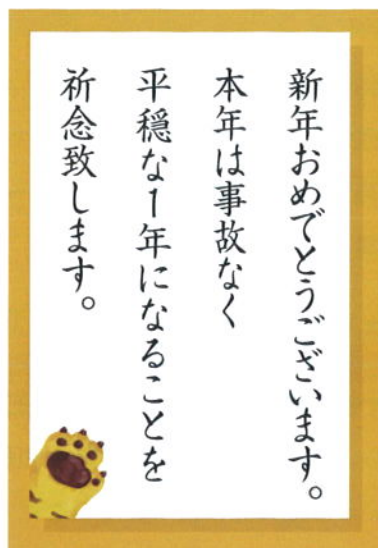 新年おめでとうございます。
本年は事故なく
平穏な1年になることを
祈念致します。